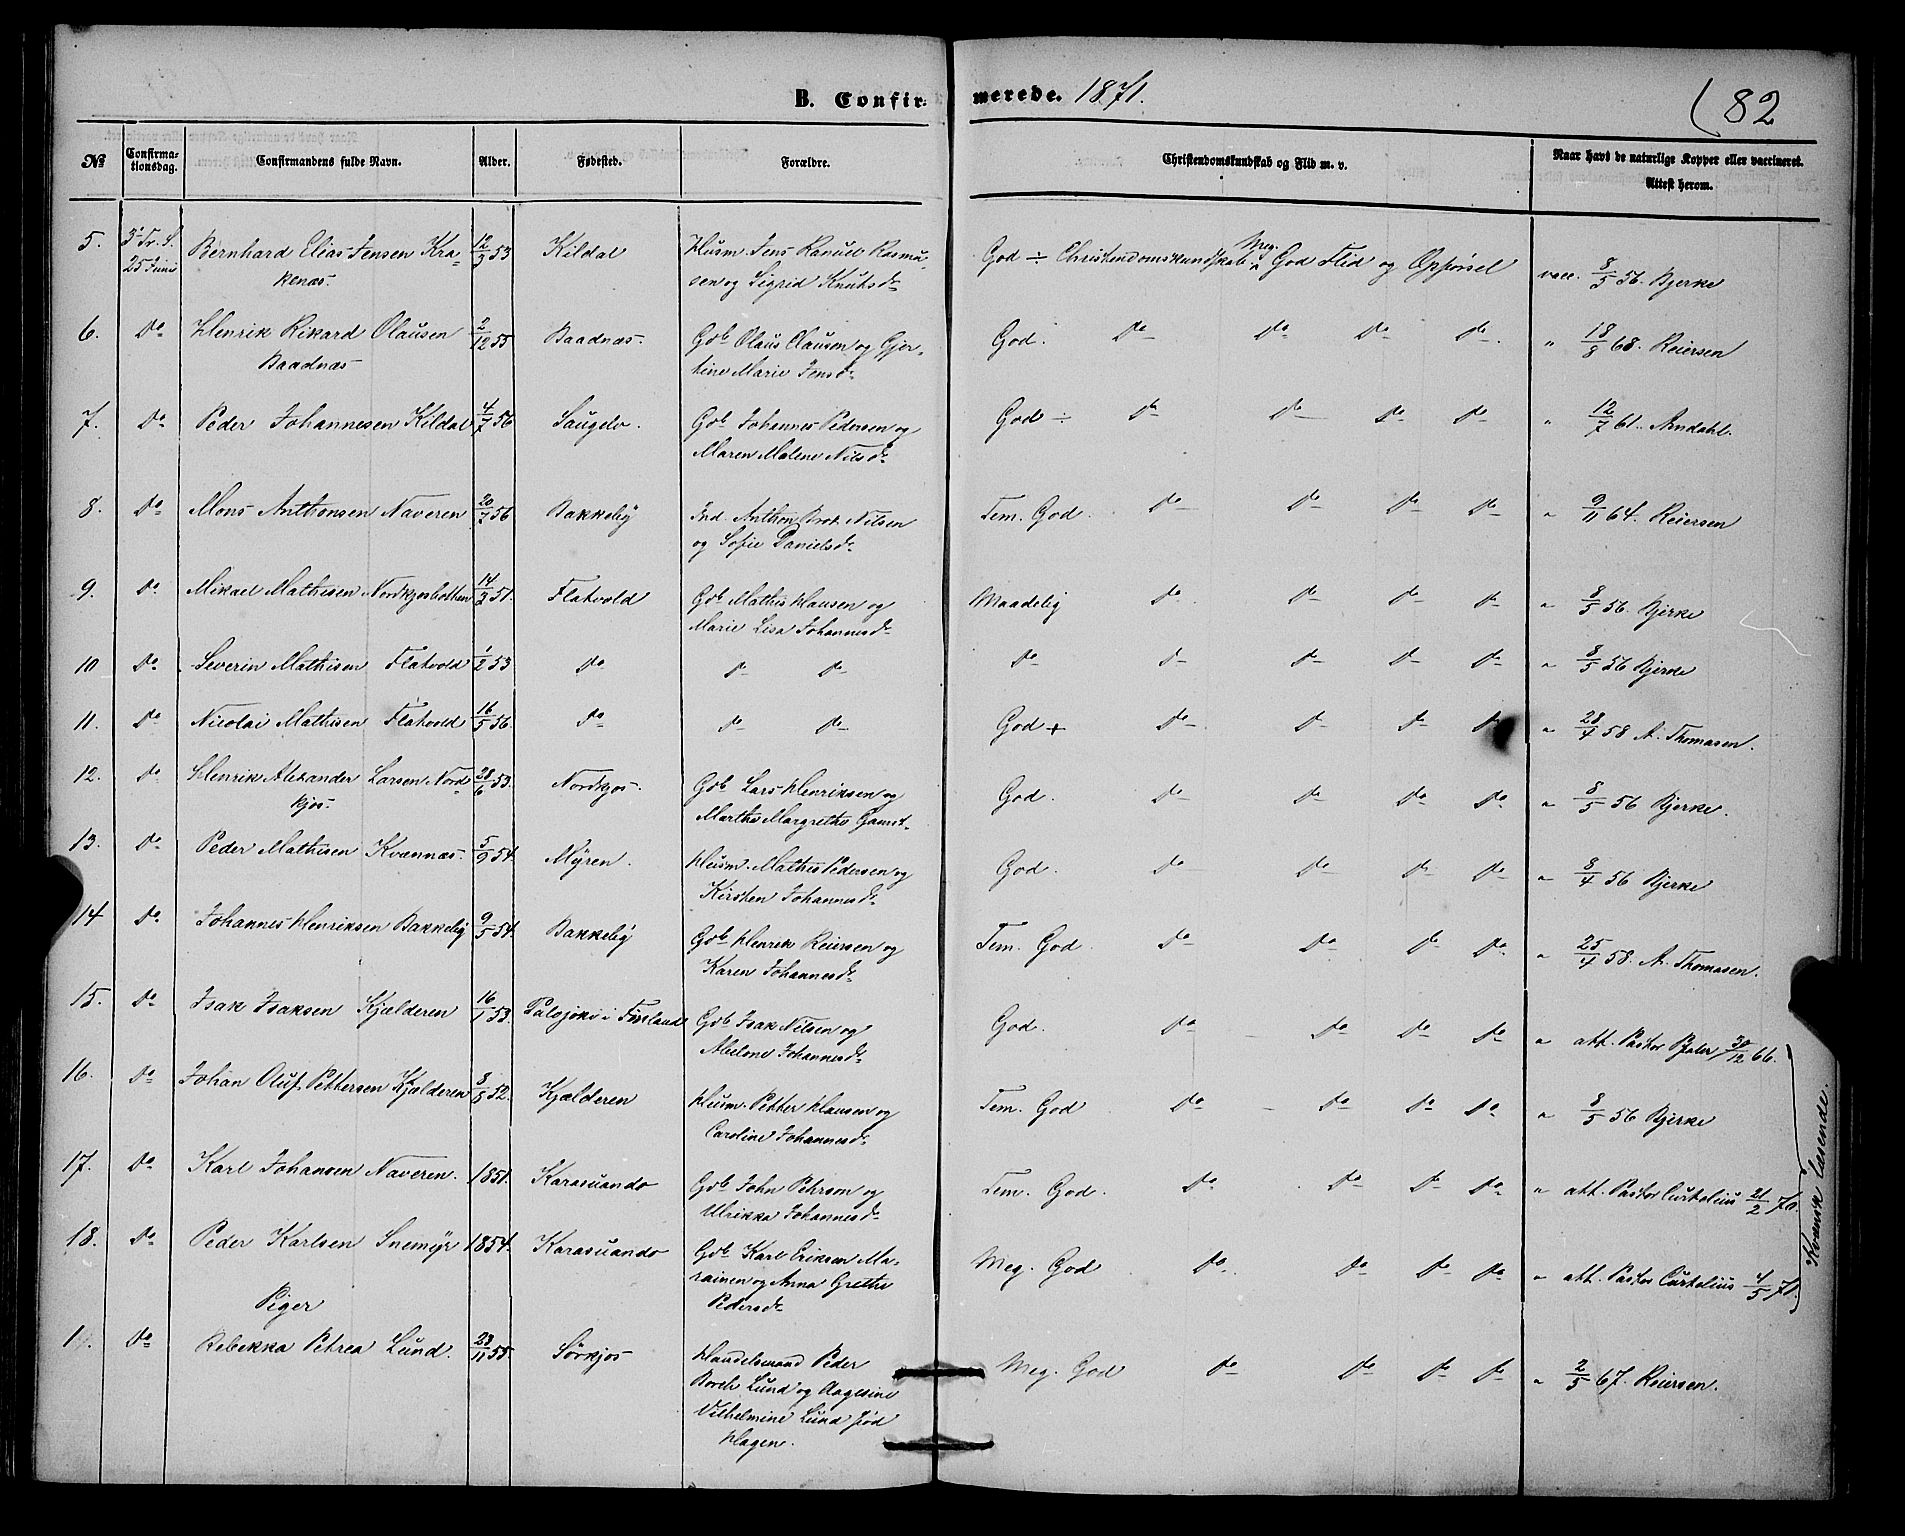 B. Confirmerede. 1871. 82
No Confirmationsdag. Confirmandens fulde Navn. Alder. Fødested. Forældre. Christendomskundskab og Flid m. v. Naar havt de naturlige Kopper eller vaccineret. Attest herom.
5. 3. Tr. S. 25 Juni Bernhard Elias Jensen Kra- 12/3 53 Kildal Husm Jens Rasmu- God ÷ Christendomskundskab Meg. God Flid og Opførsel vacc. 8/5 56. Bjerke
kenæs. sen og Sigrid Knutsdr
6. Do Henrik Rikard Olausen 2/12 55 Baadnæs. Gdb Olaus Clausen og Gjer- God. Do Do Do do. " 18/8 68. Reiersen
Baadnæs tine Marie Jensdr
7. Do Peder Johannesen Kildal 4/7 56 Saugelv. Gdb Johannes Pedersen og God ÷ Do Do Do Do " 12/7 61. Arndahl.
Maren Malene Nilsdr
8. Do Mons Anthonsen Naveren 20/7 56 Bakkeby Ind. Anthon Nilsen Tem. God. Do Do Do Do " 9/11 64. Reiersen
og Sofie Danielsdr
9. Do Mikael Mathisen Nordkjosbotten 14/2 51. Flatvold Gdb Mathis Hansen og Maadelig Do Do Do Do " 8/5 56. Bjerke
Marie Lisa Johannesdr
10 Do Severin Mathisen Flatvold 1/2 53 Do Do Do Do Do Do Do Do " 8/5 56 Bjerke
11. Do Nicolai Mathisen Flatvold 16/5 56. Do Do Do God + Do Do Do Do " 28/4 58 A. Thomasen.
12. Do Henrik Alexander Larsen Nord- 28/6 53. Nordkjos. Gdb Lars Henriksen og God. Do Do Do Do " 8/5 56 Bjerke.
kjos. Marthe Margrethe Gamst.
13. Do Peder Mathisen Kvænnæs. 5/9 54. Myren. Husm. Mathis Pedersen og God. Do Do Do Do " 8/4 56 Bjerke
Kirsten Johannesdr
14 Do Johannes Henriksen Bakkeby 9/5 54. Bakkeby Gdb Henrik Reiersen og Tem. God. Do Do Do Do " 25/4 58. A. Thomasen.
Karen Johannesdr
15. Do Isak Isaksen Kjælderen 16/1 53. Palojoki i Finland Gdb Isak Nilsen og God. Do Do Do Do " att. Pastor 30/12 66.
Abelone Johannesdr
16. Do Johan Oluf Pettersen Kjælderen 8/8 52. Kjælderen Husm. Petter Hansen og Tem. God Do Do Do Do " 8/5 56 Bjerke
Caroline Johannesdr
17. Do Karl Johansen Naveren. 1851. Karasuando Gdb John Pehrson og Tem. God. Do Do Do Do " att. Pastor Curtelius 21/2 70.
Ulrikka Johannesdr
18. Do Peder Karlsen Snemyr 1854. Karasuando Gdb Karl Eriksen Ma- Meg. God Do Do Do Do " att. Pastor Curtelius 4/5 71.
rainen og Anna Grethe
Pedersdr
Kvænsk læsende.
Piger
1. Do Rebekka Petrea Lund. 23/11 55. Sørkjos Handelsmand Peder Meg. God Do Do Do Do " 2/5 67. Reiersen.
Borch Lund og Aagesine
Vilhelmine Lund fød
Hagen.